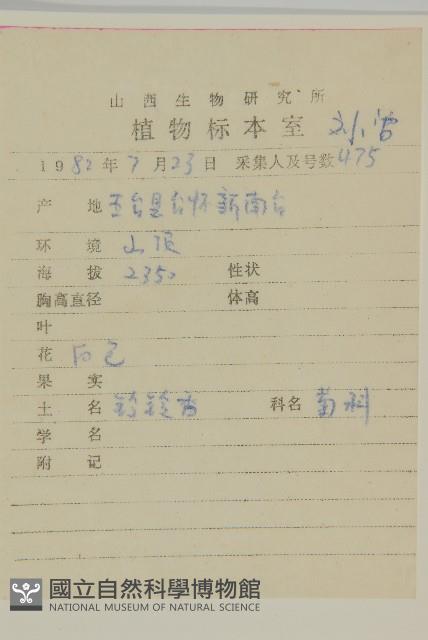 山西生物研究所
植物标本室 刘
1982年7月23日 采集人及号数 475
产地 五台县台怀新南台
环境 山顶
海拔 2350 性状
胸高直径 体高
叶
花 白色
果实
土名 铃铃香 科名 菊科
学名
附记
國立自然科學博物館
NATIONAL MUSEUM OF NATURAL SCIENCE